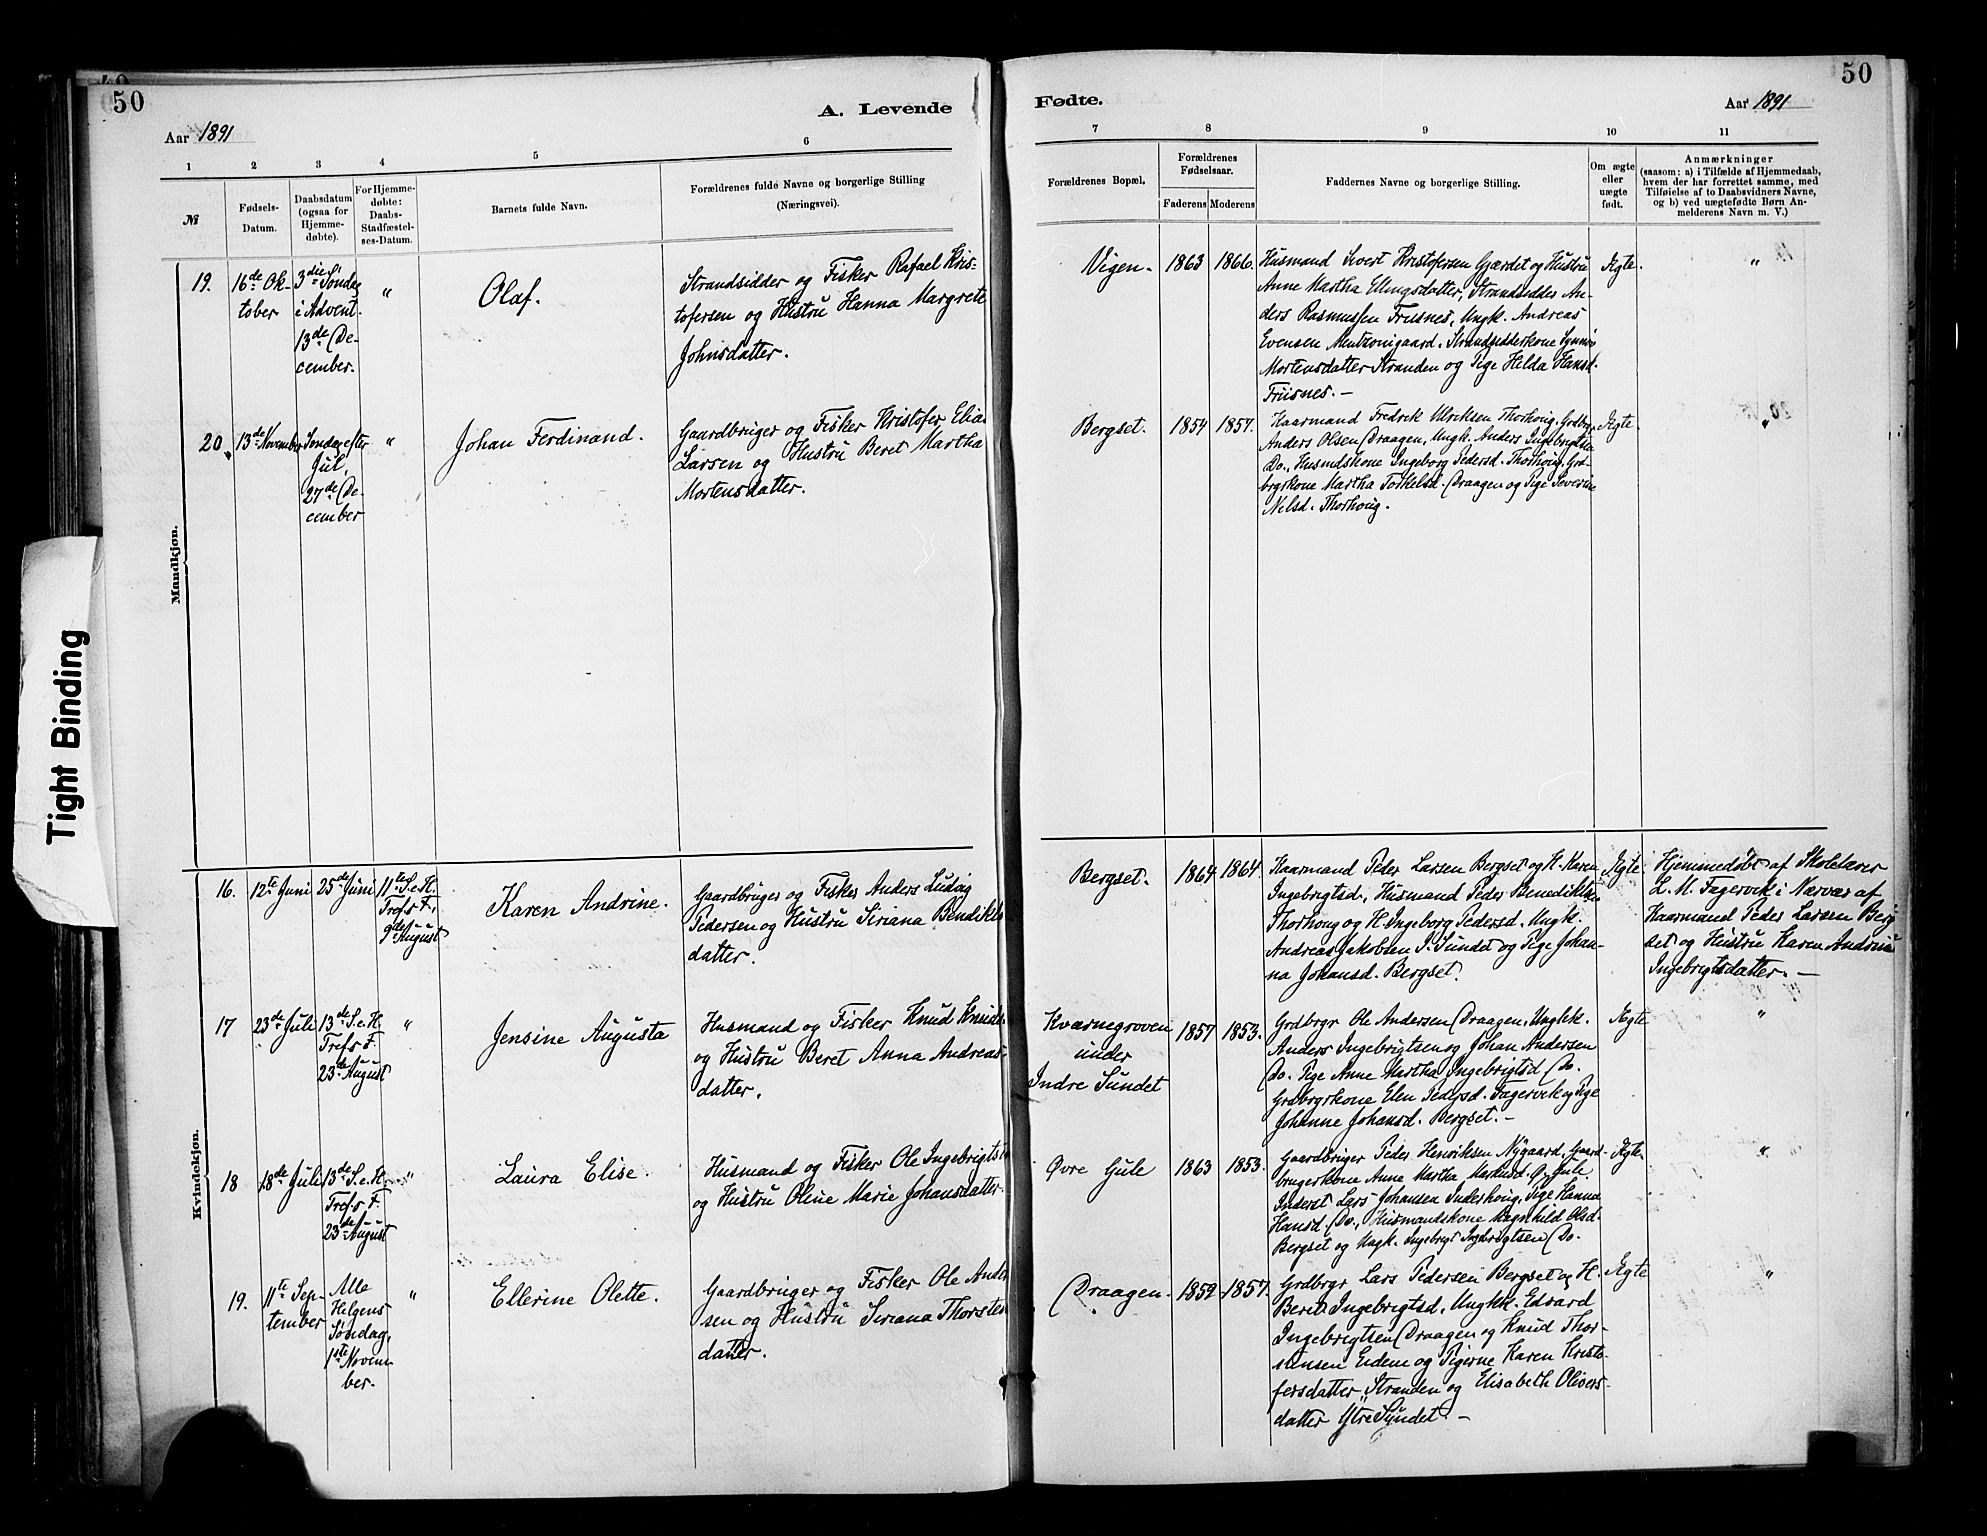 50
A. Levende
Aar 1891
1 2 3 4 5 6
№
Fødsels-
Datum.
Daabsdatum
(ogsaa for
Hjemme-
døbte).
For Hjemme-
døbte:
Daabs-
Stadfæstel-
ses-Datum.
Barnets fulde Navn.
Forældrenes fulde Navne og borgerlige Stilling
(Næringsvei).
Mandkjøn.
19.
16de Ok-
tober
3die Søndag
i Advent.
13de De-
cember.
"
Olaf.
Strandsidder og Fisker Rafael Kris-
tofersen og Hustru Hanna Margrete
Johnsdatter.
20.
13de November
Søndag efter
Jul,
27de De-
cember
"
Johan Ferdinand.
Gaardbruger og Fisker Kristofer Elia-
Larsen og Hustru Beret Martha
Mortensdatter.
Kvindekjøn.
16.
12te Juni
25de Juni
11te S. e. H.
Tref's F.,
9de August
Karen Andrine.
Gaardbruger og Fisker Anders Ludvig
Pedersen og Hustru Siriana Bendikts
datter.
17
23de Juli
13de S. e. H.
Tref's F.
23de August
"
Jensine Augusta
Husmand og Fisker Knud Knuds.
og Hustru Beret Anna Andreas-
datter.
18
18de Juli
13de S. e. H.
Tref's F.
23de August
"
Laura Elise.
Husmand og Fisker Ole Ingebrigts
og Hustru Oline Marie Johansdatter.
19.
11te Sep-
tember
Alle
Helgens
Søndag,
1ste Novem-
ber.
"
Ellerine Olette.
Gaardbruger og Fisker Ole Ander
sen og Hustru Siriana Thorsten
datter.
Tight Binding
50
Fødte.
Aar 1891
7 8 9 10 11
Forældrenes Bopæl.
Forældrenes
Fødselsaar.
Faderens Moderens
Faddernes Navne og borgerlige Stilling.
Om ægte
eller
uægte
født.
Anmærkninger
(saasom: a) i Tilfælde af Hjemmedaab,
hvem der har forrettet samme, med
Tilføielse af to Daabsvidners Navne,
og b) ved uægtefødte Børn An-
melderens Navn m. V.)
Vigen. 1863 1866.
Husmand Sivert Kristofersen Gjærdet og Hustru
Anne Martha Ellingsdatter, Strandsiddes An-
ders Rasmussen Frusnes, Ungk. Andreas
Evensen Strandsidderkone Synnøv
Mortensdatter Stranden og Pige Helda Hansd.
Frusnes. —
Ægte.
"
Bergset. 1854 1857.
Kaarmand Fredrik Ulriksen Thorhoug, Grdbrgr
Anders Olsen Draagen, Ungk. Anders Ingebrigtsen
Do., Husmdskone Ingeborg Pedersd. Thorhoug, Grd-
brgrkone Martha Torkelsd. Draagen og Pige Severine
Nelsd. Thorhoug.
Ægte.
"
Bergset. 1864 1864.
Kaarmand Peder Larsen Bergset og H. Karen
Ingebrigtsd., Husmand Peder Benediktsen
Thorhoug og H. Ingeborg Pedersd. Ungk.
Andreas Jakobsen I. Sundet og Pige Johan-
na Johansd. Bergset.
Ægte.
Hjemmedøbt af Skolelærer
L. M. Fagervik i Nærvær af
Kaarmand Peder Larsen Berg
set og Hustru Karen Andrine
Ingebrigtsdatter. —
Kværnegroven
under
Indre Sundet
1857 1853.
Grdbrgr Ole Andersen Draagen, Ungkk.
Anders Ingebrigtsen og Johan Andersen
Do. Pige Anne Martha Ingebrigtsd Do.
Grdbrgrkone Elen Pedersd. Fagervik og Pige
Johanne Johansd. Bergset. —
Ægte
"
Øvre Gule 1863 1853.
Gaardbruger Peder Henriksen Nygaard, Gaard-
brugerkone Anne Martha Markusd. Ø. Gule
Inderst Lars Johansen Inderhoug, Pige Hanna
Hansd. Do., Husmandskone Ragnhild Olsd.
Bergset og Ungk. Ingebrigt Ingebrigtsen Do.
Ægte.
"
Draagen. 1852 1857.
Grdbrgr Lars Pedersen Bergset og H.
Beret Ingebrigtsd., Ungkk. Edvard
Ingebrigtsen Draagen og Knud Thor-
stensen Eidem og Pigerne Karen Kristo-
fersdatter Stranden og Elisabeth Olivers-
datter Ytre Sundet. —
Ægte
"